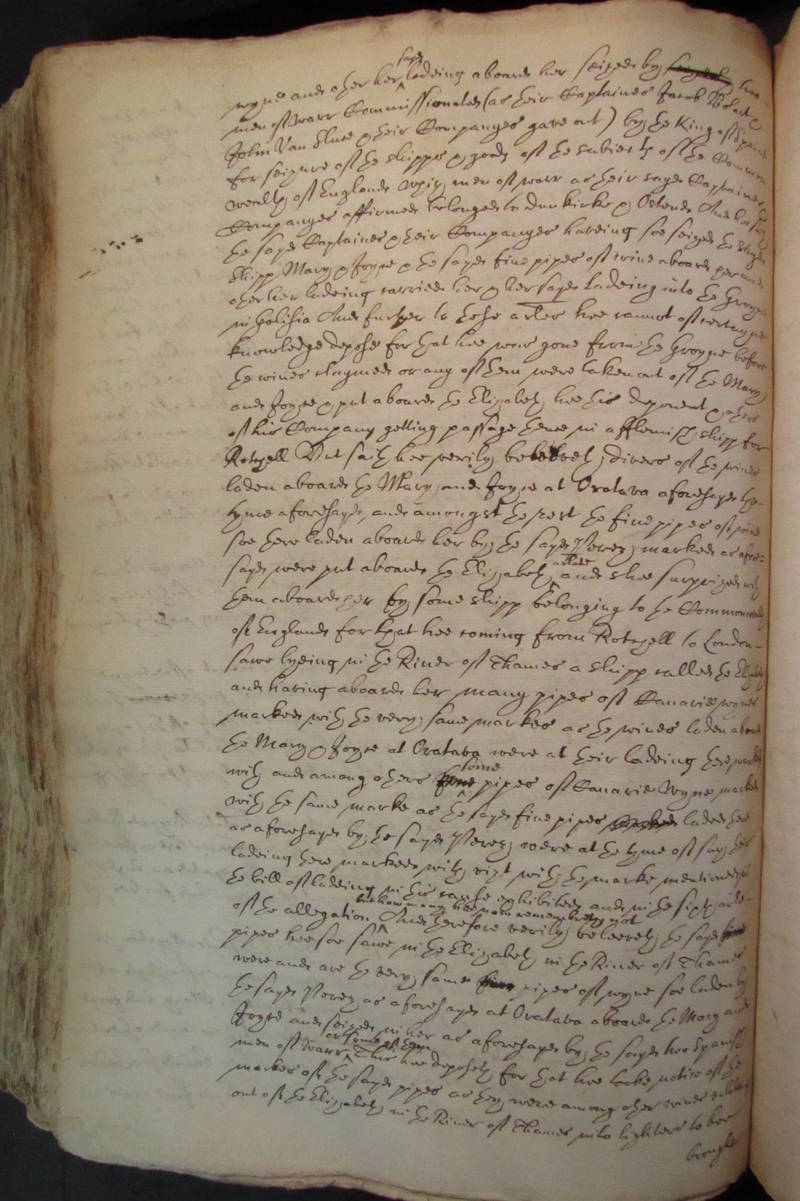 wyne and other her sayd ladeing aboard her seized by two
men of warr Commissionated (as their Captaines Jacob
John Van Sluce & their Companyes gave out) by the King of Spaine
for seizure of the shipps & goods of the subiects of the Common
wealth of England which men of warr as their sayd Captaines &
Companyes affirmed belonged to dunkirke & Ostend And
the sayd Captaines & their Companyes having soe seized the sayd
shipp Mary & Joyce & the sayd five pipes of wine aboard her and
other her ladeing carried her & her sayd ladeing into the Groyne
in Galisia And further to theise arles hee cannot of certayne
knowledge depose for that hee was gone from the Groyne before
the wines claymed or any of them were taken out of the Mary
and Joyce & put aboard the Elizabeth hee this deponent & others
of his Company getting passage thence in a fflemish shipp for
Rochell But saith hee verily beleeveth divers of the wines
laden aboard the Mary and Joyce at Oratava aforesayd the
tyme aforesayd, and amongst the rest the five pipes of wine
soe there laden aboard her by the sayd Perez marked as afore-
sayd were put aboard the Elizabeth and shee surprized with
them aboard her by some shipp belonging to the Commonwealth
of England for that hee coming from Rochell to London
sawe lyeing in the River of Thames a shipp called the Elizabeth
and having aboard her many pipes of Canarie wynes
marked with the very same markes as the wines laden aboard
the Mary & Joyce at Oratava were at their ladeing there marked
with and among others some pipes of Canarie Wyne marked
with the same marke as the sayd five pipes laden there
as aforesayd by the sayd Perez were at the tyme of such their
ladeing there marked with vizt with the marke mentioned in
the bill of ladeing in this cause exhibited and in the sixth arle
of the allegation but how many hee now remembreth not And therefore verily beleeveth the sayd
pipes hee soe sawe in the Elizabeth in the River of Thames
were and are the very same pipes of wyne soe laden by
the sayd Perez as aforesayd at Oratava aboard the Mary and
Joyce and seized in her as aforesayd by the sayd two Spanish
men of warr or some of them This hee deposeth for that hee tooke notice of the
markes of the sayd pipes as they were among other wines
out of the Elizabeth in the River of Thames into lighters to bee
brought